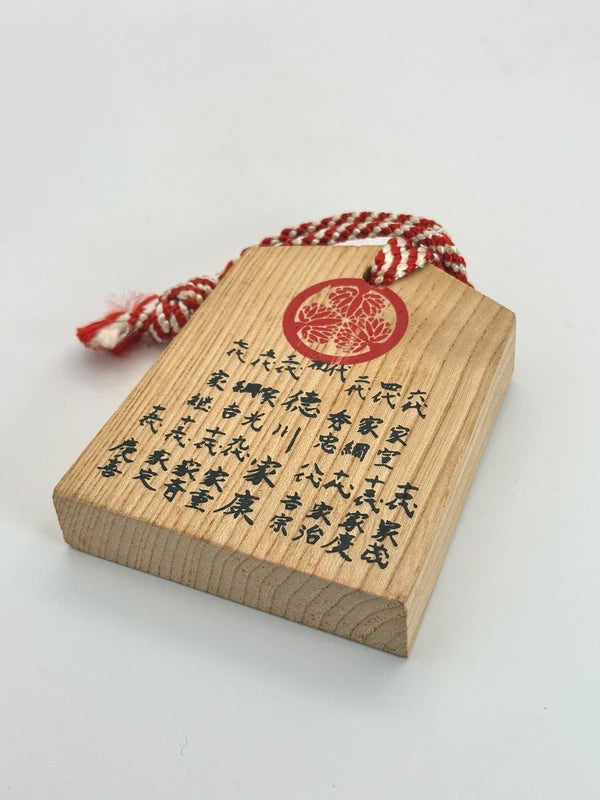 十四代 家茂
六代 家宣 十二代 家慶
四代 家綱 十代 家治
二代 秀忠 八代 吉宗
初代 徳川家康
三代 家光 九代 家重
五代 綱吉 十一代 家斉
七代 家継 十三代 家定
十五代 慶喜